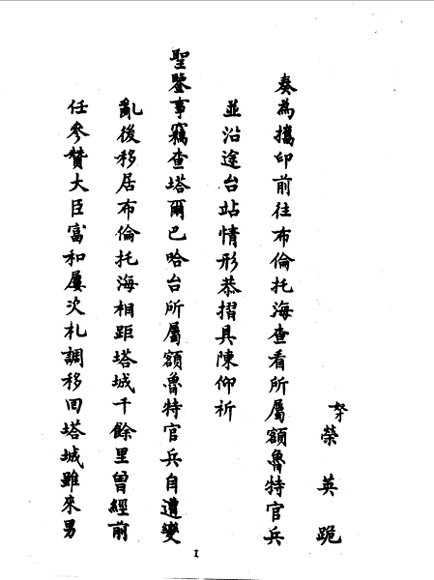 奴才榮英跪
奏為攜印前往布倫托海查看所屬額魯特官兵
並沿途台站情形恭摺具陳仰祈
聖鑒事竊查塔爾巴哈台所屬額魯特官兵自遭變
亂後移居布倫托海相距塔城千餘里曾經前
任參贊大臣富和屢次札調移回塔城雖來男
1